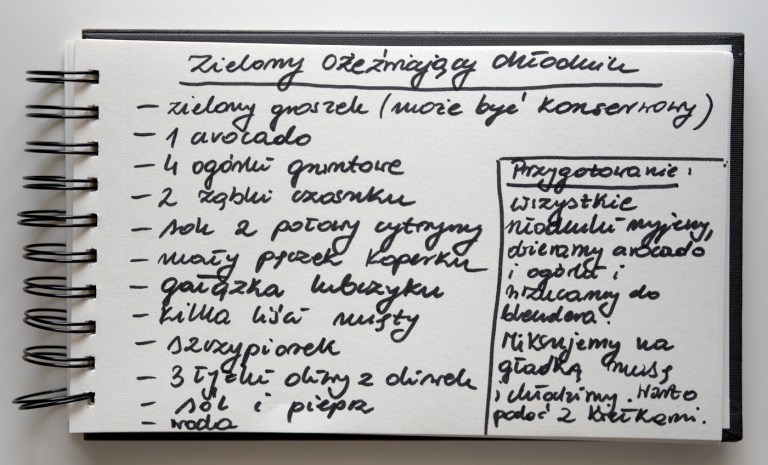 Zielony orzeźwiający chłodnik
- zielony groszek (może być konserwowy)
- 1 avocado
- 4 ogórki gruntowe
- 2 ząbki czosnku
- sok z połowy cytryny
- mały pęczek koperku
- gałązka lubczyku
- kilka liści mięty
- szczypiorek
- 3 łyżki oliwy z oliwek
- sól i pieprz
- woda
Przygotowanie:
wszystkie
składniki myjemy,
obieramy avocado
i ogórki i
wrzucamy do
blendera.
Miksujemy na
gładką masę
i chłodzimy. Warto
podać z kiełkami.